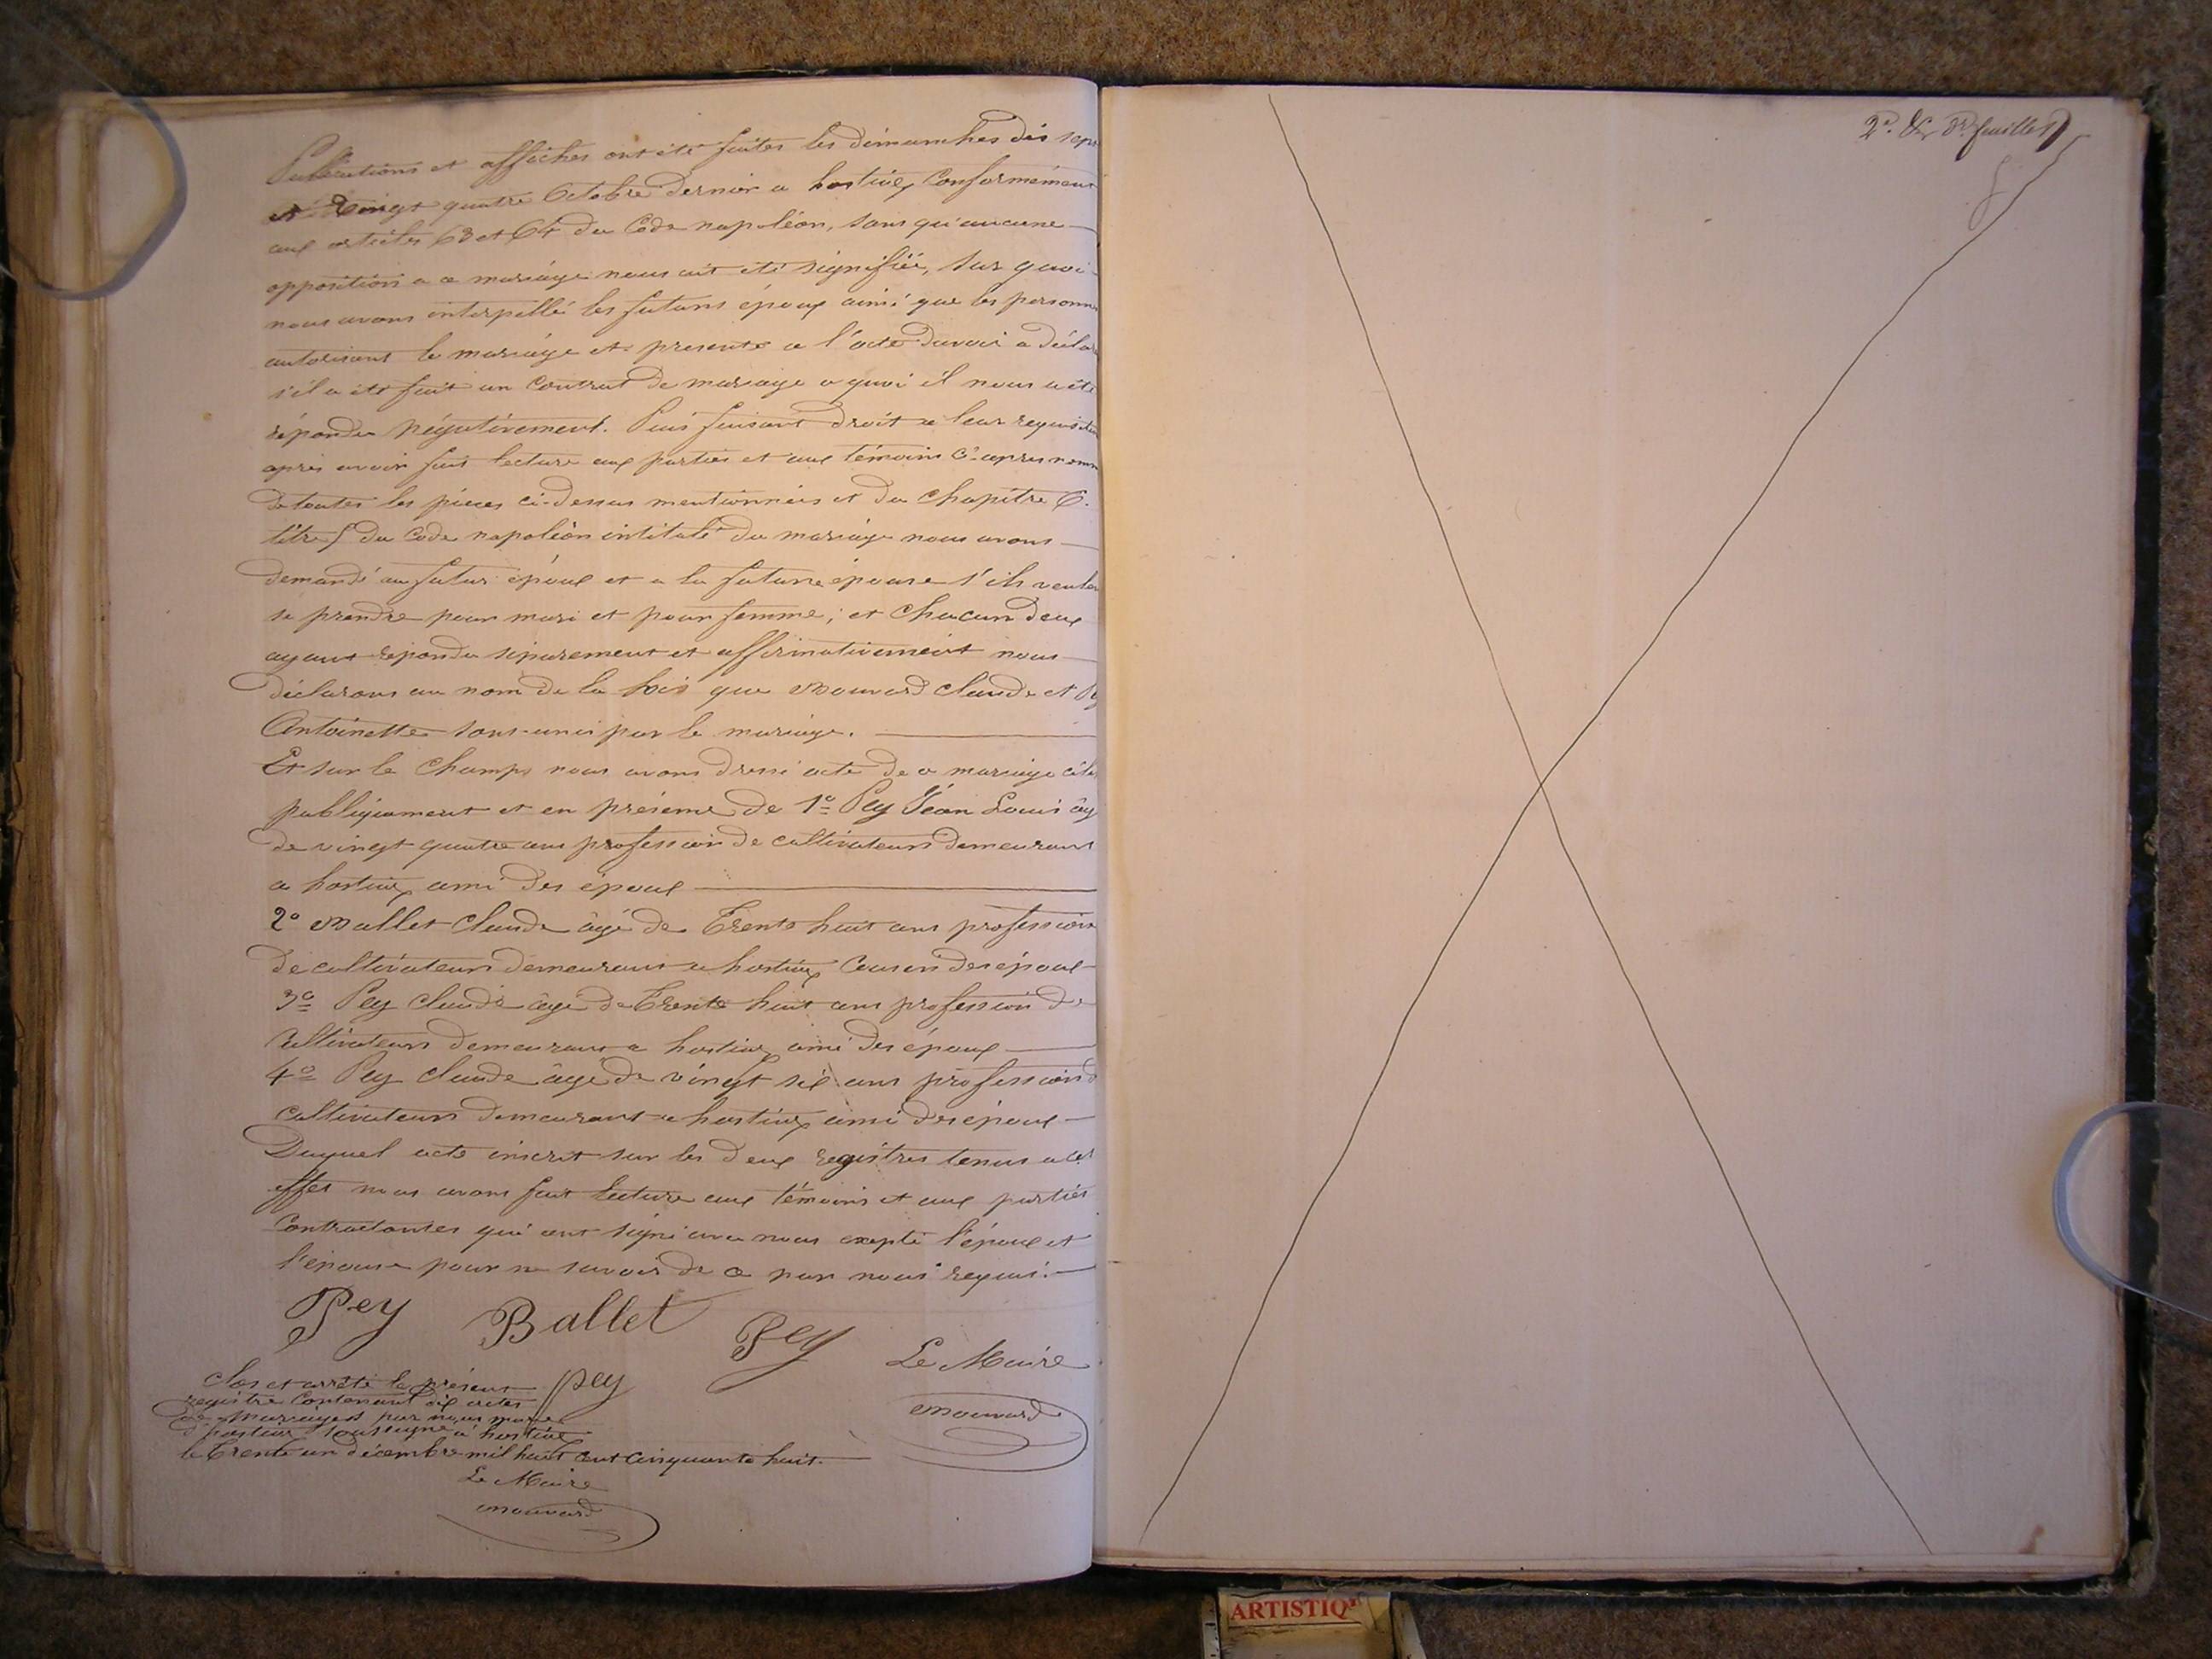 Publications et affiches ont été faites les dimanches dix sept
et Vingt quatre Octobre dernier a hostiaz Conformément
aux articles 63 et 64 du Code napoléon, sans qu'aucune
opposition a ce mariage nous ait été signifiée, sur quoi
nous avons interpellé les futurs époux ainsi que les personnes
autorisant le mariage et présente a l'acte davoir a déclarer
s'il a été fait un Contrat de mariage a quoi il nous a été
répondu Négativement. Puis faisant droit a leur requisition
après avoir fait lecture aux parties et aux témoins Ci-apres nommé
de toutes les pièces ci-dessus mentionnées et du chapitre 6.
titre 5 du Code napoléon intitulé du mariage nous avons
demandé au futur époux et a la future épouse s'ils veulent
se prendre pour mari et pour femme; et Chacun deux
ayant répondu séparement et affirmativement nous
déclarons au nom de la loi que Mouvard claude et Pey
Antoinette sont unis par le mariage.
Et sur le Champs nous avons dressé acte de ce mariage célébré
publiquement et en présence de 1o Pey Jean Louis âgé
de vingt quatre ans profession de cultivateurs demeurant
a hostiaz ami des époux
2o Ballet Claude âgé de Trente huit ans profession
de cultivateurs demeurant a hostiaz Cousin des époux
3o Pey Claude âgé de Trente huit ans profession de
Cultivateurs demeurant a hostiaz ami des époux
4o Pey Claude âgé de vingt six ans profession d
cultivateurs demeurant a hostiaz ami des époux
Duquel acte inscrit sur les deux registres tenus a cet
effet nous avons fait lecture aux témoins et aux parties
Contractantes qui ont signé avec nous exepté l'époux et
l'épouse pour ne savoir de ce par nous requis.
Pey Ballet Pey
Le Maire
Pey
Mouvard
Clos et arrêté le présent
registre Contenant dix actes
de Mariages par nous maire
d'hostiaz soussigné a hostiaz
le Trente un décembre mil huit cent Cinquante huit.
Le Maire
Mouvard
2e. & de. feuillet
ARTISTIQ